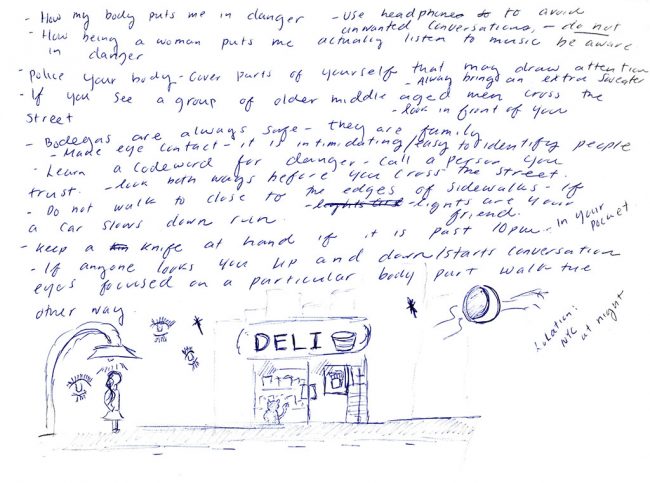 - How my body puts me in danger - Use headphones to to avoid
- How being a woman puts me unwanted conversations, - do not
in danger actually listen to music be aware
- police your body - Cover parts of yourself that may draw attention
- Alway brings an extra sweater
- If you see a group of older middle aged men cross the
street - look in front of you
- Bodegas are always safe - they are family
- Made eye contact - it is intimidating/easy to identify people
- Learn a codeword for danger - call a person you
trust. - look both ways before you cross the street.
- Do not walk to close to the edges of sidewalks - if
a car slows down run. - lights are your
friend.
- Keep a knife at hand if it is past 10pm - in your
pocket.
- If anyone looks you up and down/starts conversation
eyes focused on a particular body part walk the
other way
Location:
NYC
at night
DELI